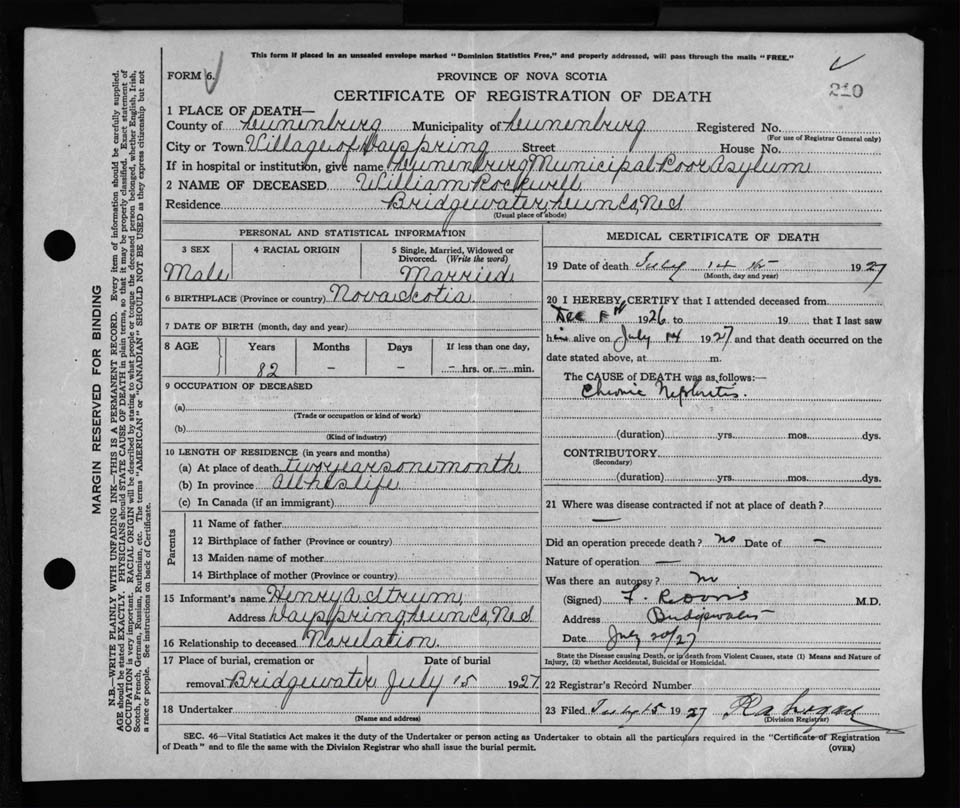 This form if placed in an unsealed envelope marked "Dominion Statistics Free," and properly addressed, will pass through the mails "FREE."
FORM 6.
PROVINCE OF NOVA SCOTIA
210
CERTIFICATE OF REGISTRATION OF DEATH
1 PLACE OF DEATH—
County of Lunenburg Municipality of Lunenburg Registered No.
(For use of Registrar General only)
City or Town Village of Dayspring Street House No.
If in hospital or institution, give name, Lunenburg Municipal Poor Asylum
2 NAME OF DECEASED William Rockwell
Residence Bridgewater Lun Co, N.S
(Usual place of abode)
PERSONAL AND STATISTICAL INFORMATION
3 SEX 4 RACIAL ORIGIN 5 Single, Married, Widowed or Divorced. (Write the word)
Male Married
6 BIRTHPLACE (Province or country) Nova Scotia
7 DATE OF BIRTH (month, day and year)
8 AGE Years Months Days If less than one day,
82 – – – hrs. or – min.
9 OCCUPATION OF DECEASED
(a)
(Trade or occupation or kind of work)
(b)
(Kind of industry)
10 LENGTH OF RESIDENCE (in years and months)
(a) At place of death two years one month
(b) In province all his life
(c) In Canada (if an immigrant)
Parents
11 Name of father
12 Birthplace of father (Province or country)
13 Maiden name of mother
14 Birthplace of mother (Province or country)
15 Informant's name Henry A Strum
Address Dayspring Lun Co, N.S
16 Relationship to deceased No relation.
17 Place of burial, cremation or Date of burial
removal Bridgewater July 15 1927
18 Undertaker
(Name and address)
MEDICAL CERTIFICATE OF DEATH
19 Date of death July 14 th 1927
(Month, day and year)
20 I HEREBY CERTIFY that I attended deceased from
Dec 1926 to 19 that I last saw
him alive on July 14 1927 and that death occurred on the
date stated above, at m.
The CAUSE of DEATH was as follows:—
Chronic Nephritis.
(duration) yrs. mos. dys.
CONTRIBUTORY
(Secondary)
(duration) yrs. mos. dys.
21 Where was disease contracted if not at place of death?
—
Did an operation precede death? no Date of –
Nature of operation —
Was there an autopsy? no
(Signed) M.D.
Address Bridgewater
Date July 20/27
State the Disease causing Death, or in death from Violent Causes, state (1) Means and Nature of
Injury, (2) whether Accidental, Suicidal or Homicidal.
22 Registrar's Record Number
23 Filed July 15 1927
(Division Registrar)
SEC. 46—Vital Statistics Act makes it the duty of the Undertaker or person acting as Undertaker to obtain all the particulars required in the "Certificate of Registration
of Death" and to file the same with the Division Registrar who shall issue the burial permit.
(OVER)
MARGIN RESERVED FOR BINDING
N.B.—WRITE PLAINLY WITH UNFADING INK—THIS IS A PERMANENT RECORD. Every item of information should be carefully supplied.
AGE should be stated EXACTLY. PHYSICIANS should STATE CAUSE OF DEATH in plain terms, so that it may be properly classified. Exact statement of
OCCUPATION is very important. RACIAL ORIGIN will be described by stating to what people or tongue the deceased person belonged, whether English, Irish,
Scotch, French, German, Russian, Ruthenian, etc. The terms "AMERICAN" or "CANADIAN" SHOULD NOT BE USED as they express citizenship but not
a race or people. See instructions on back of Certificate.